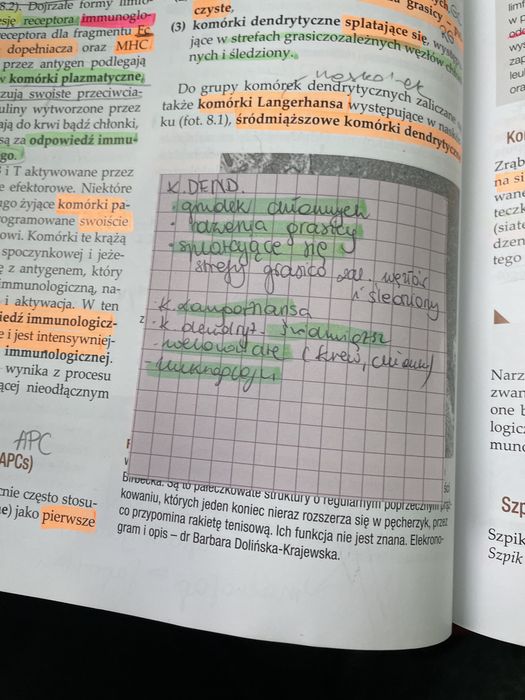 8.2). Dojrzałe formy limfo-
esję receptora immunoglo-
receptora dla fragmentu Fc
dopełniacza oraz MHC
przez antygen podlegają
w komórki plazmatyczne,
zują swoiste przeciwcia-
uliny wytworzone przez
ają do krwi bądź chłonki,
są za odpowiedź immu-
go.
i T aktywowane przez
e efektorowe. Niektóre
go żyjące komórki pa-
rogramowane swoiście
owi. Komórki te krążą
spoczynkowej i jeże-
ę z antygenem, który
immunologiczną, na-
i aktywacja. W ten
iedź immunologicz-
e i jest intensywniej-
immunologicznej.
wynika z procesu
ącej nieodłącznym
APC
APCs)
cnie często stosu-
e) jako pierwsze
czyste,
grasicy
(3) komórki dendrytyczne splatające się, występu-
jące w strefach grasiczozależnych węzłów chłon-
nych i śledziony.
naskórek
Do grupy komórek dendrytycznych zaliczane
także komórki Langerhansa występujące w naskór-
ku (fot. 8.1), śródmiąższowe komórki dendrytyczne
K. DEND.
· grudek chłonnych
· rdzenia grasicy
strefy grasico zal. węzłów
i śledziony
· K. Langerhansa
· k dendryt. śródmiąższ
- welonowate (krew, chłonka)
z
Birbecka. Są to pałeczkowate struktury o regularnym poprzecznym prąż-
kowaniu, których jeden koniec nieraz rozszerza się w pęcherzyk, przez
co przypomina rakietę tenisową. Ich funkcja nie jest znana. Elektrono-
gram i opis – dr Barbara Dolińska-Krajewska.
limf
wyp
zap
leu
ora
Ko
Zrąb
na si
wan
teczk
(siate
dzen
tego
Narz
zwan
one b
logic
mund
Szp
Szpik
Szpik